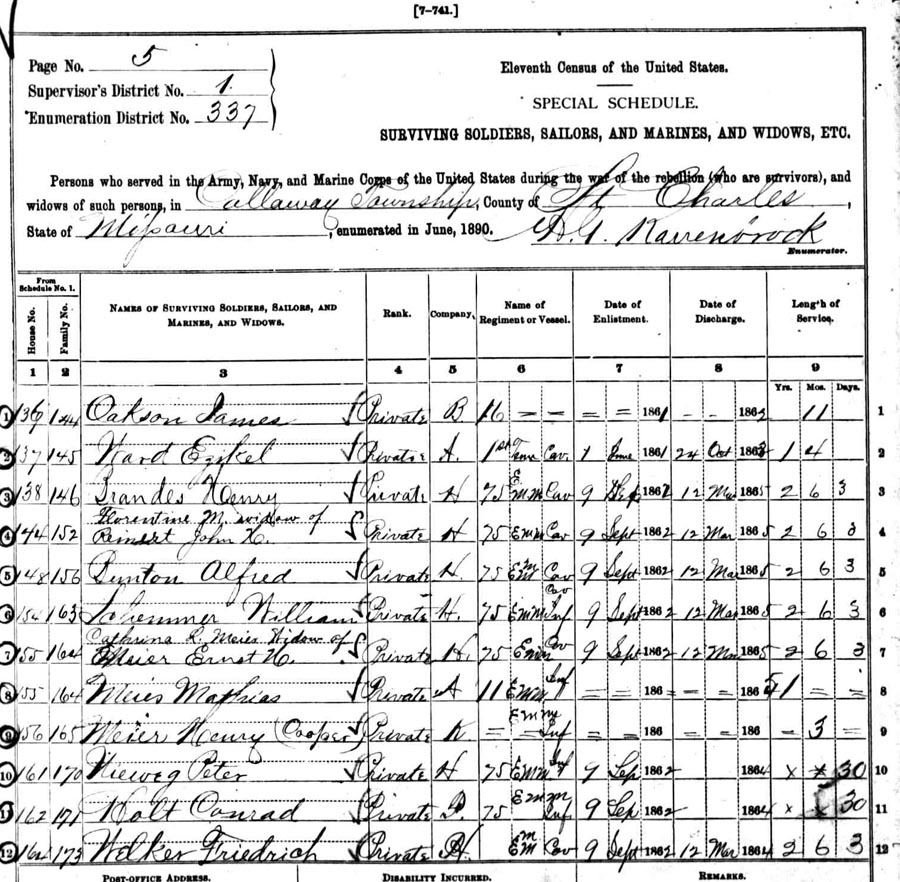 [7-741.]
Page No. 5
Supervisor's District No. 1.
Enumeration District No. 337
Eleventh Census of the United States.
SPECIAL SCHEDULE.
SURVIVING SOLDIERS, SAILORS, AND MARINES, AND WIDOWS, ETC.
Persons who served in the Army, Navy, and Marine Corps of the United States during the war of the rebellion (who are survivors), and
widows of such persons, in Callaway Township, County of St Charles,
State of Missouri, enumerated in June, 1890.
Enumerator.
From Schedule No. 1.
House No. Family No. NAMES OF SURVIVING SOLDIERS, SAILORS, AND MARINES, AND WIDOWS. Rank. Company. Name of Regiment or Vessel. Date of Enlistment. Date of Discharge. Length of Service.
1 2 3 4 5 6 7 8 9
Yrs. Mos. Days.
1 136 144 Oakson James Private B 16 = = = = 1861 - - 1862 11 1
2 137 145 Ward Ezikel Private A. 1st Cav. 1 June 1861 24 Oct 1863 1 4 2
3 138 146 Brandes Henry Private H 75 E M M Cav 9 Sep 1862 12 Mar 1865 2 6 3 3
Florentine M. widow of
4 144 152 Reinert John H. Private H 75 E M M Cav 9 Sept 1862 12 Mar 1865 2 6 3 4
5 148 156 Dunton Alfred Private H. 75 E M M Cav 9 Sept 1862 12 Mar 1865 2 6 3 5
6 154 163 Schemmer William Private H. 75 E M M Cav Inf 9 Sept 1862 12 Mar 1865 2 6 3 6
Cathrina L. Meier Widow of
7 155 164 Meier Ernst H. Private H. 75 E M M Cav 9 Sept 1862 12 Mar 1865 2 6 3 7
8 155 164 Meier Mathias Private A 11 E M M Inf = = 186 = = 186 1 = = 8
9 156 165 Meier Henry (Cooper) Private K = E M M Inf = = 186 = = 186 - 3 = 9
10 161 170 Nieweg Peter Private H 75 E M M Inf 9 Sep 1862 1864 x x 30 10
11 162 171 Holt Conrad Private 75 E M M Inf 9 Sep 1862 1864 x x 30 11
12 164 173 Welker Friedrich Private H. E M M Cav 9 Sept 1862 12 Mar 1864 2 6 3 12
POST-OFFICE ADDRESS. DISABILITY INCURRED. REMARKS.